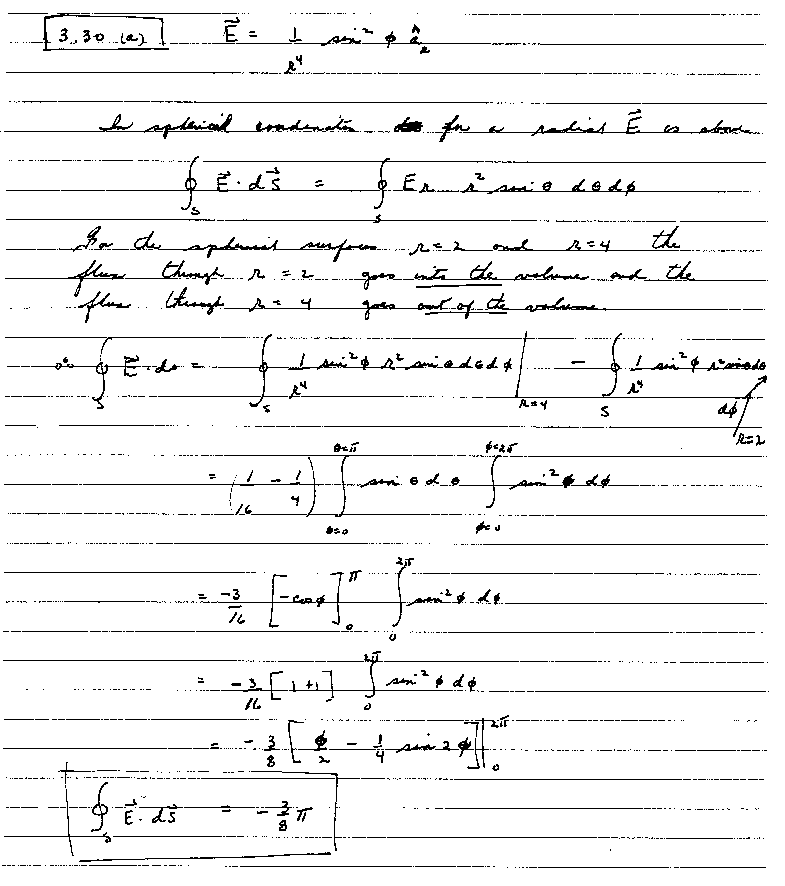 3.30 (a) \vec{E} = \frac{1}{R^4} \sin^2 \phi \hat{a}_R
In spherical coordinates for a radial \vec{E} as above
\oint_S \vec{E} \cdot d\vec{S} = \oint_S E_R R^2 \sin θ dθ dφ
For the spherical surfaces R=2 and R=4 the
flux through R = 2 goes into the volume and the
flux through R = 4 goes out of the volume.
∴ \oint_S \vec{E} \cdot ds = \oint_S \frac{1}{R^4} \sin^2 φ R^2 \sin θ dθ dφ |_{R=4} - \oint_S \frac{1}{R^4} \sin^2 φ R^2 \sin θ dθ dφ |_{R=2}
= (\frac{1}{16} - \frac{1}{4}) \int_{θ=0}^{θ=π} \sin θ dθ \int_{φ=0}^{φ=2π} \sin^2 φ dφ
= \frac{-3}{16} [-\cos φ]_0^π \int_0^{2π} \sin^2 φ dφ
= -\frac{3}{16} [1+1] \int_0^{2π} \sin^2 φ dφ
= -\frac{3}{8} [\frac{φ}{2} - \frac{1}{4} \sin 2φ] |_0^{2π}
\oint_S \vec{E} \cdot d\vec{s} = -\frac{3}{8} π